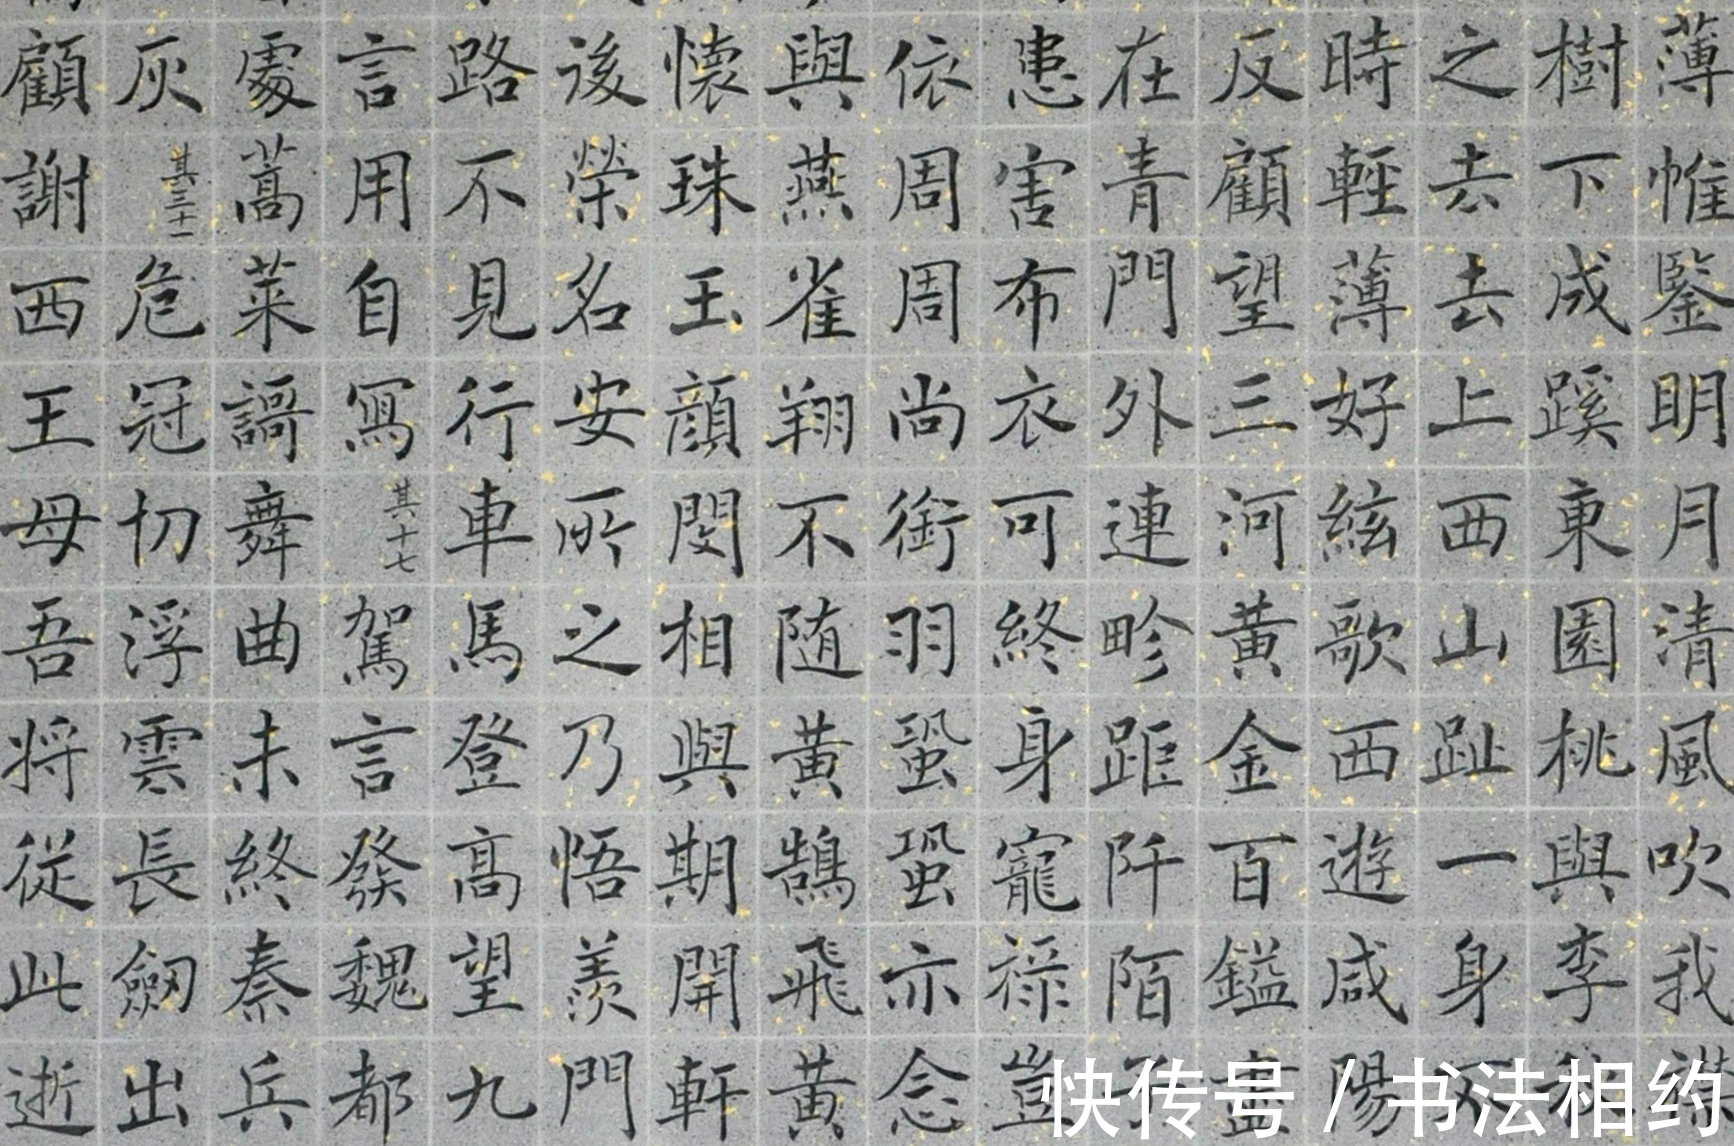 薄帷鑒明月清風吹我襟
樹下成蹊東園桃與李
之去去上西山趾一身
時輕薄好絃歌西遊咸陽
反顧望三河黃金百鎰盡
在青門外連畛距阡陌
患害布衣可終身寵祿豈
依周周尚銜羽蛩蛩亦念
與燕雀翔不随黃鵠飛黃
懷珠玉顏閔相與期開軒
後榮名安所之乃悟羨門
路不見行車馬登高望九
言用自寫其十七駕言發魏都
處蒿萊謌舞曲未終秦兵
灰其三十一危冠切浮雲長劔出
顧謝西王母吾将從此逝
快传号/书法相约